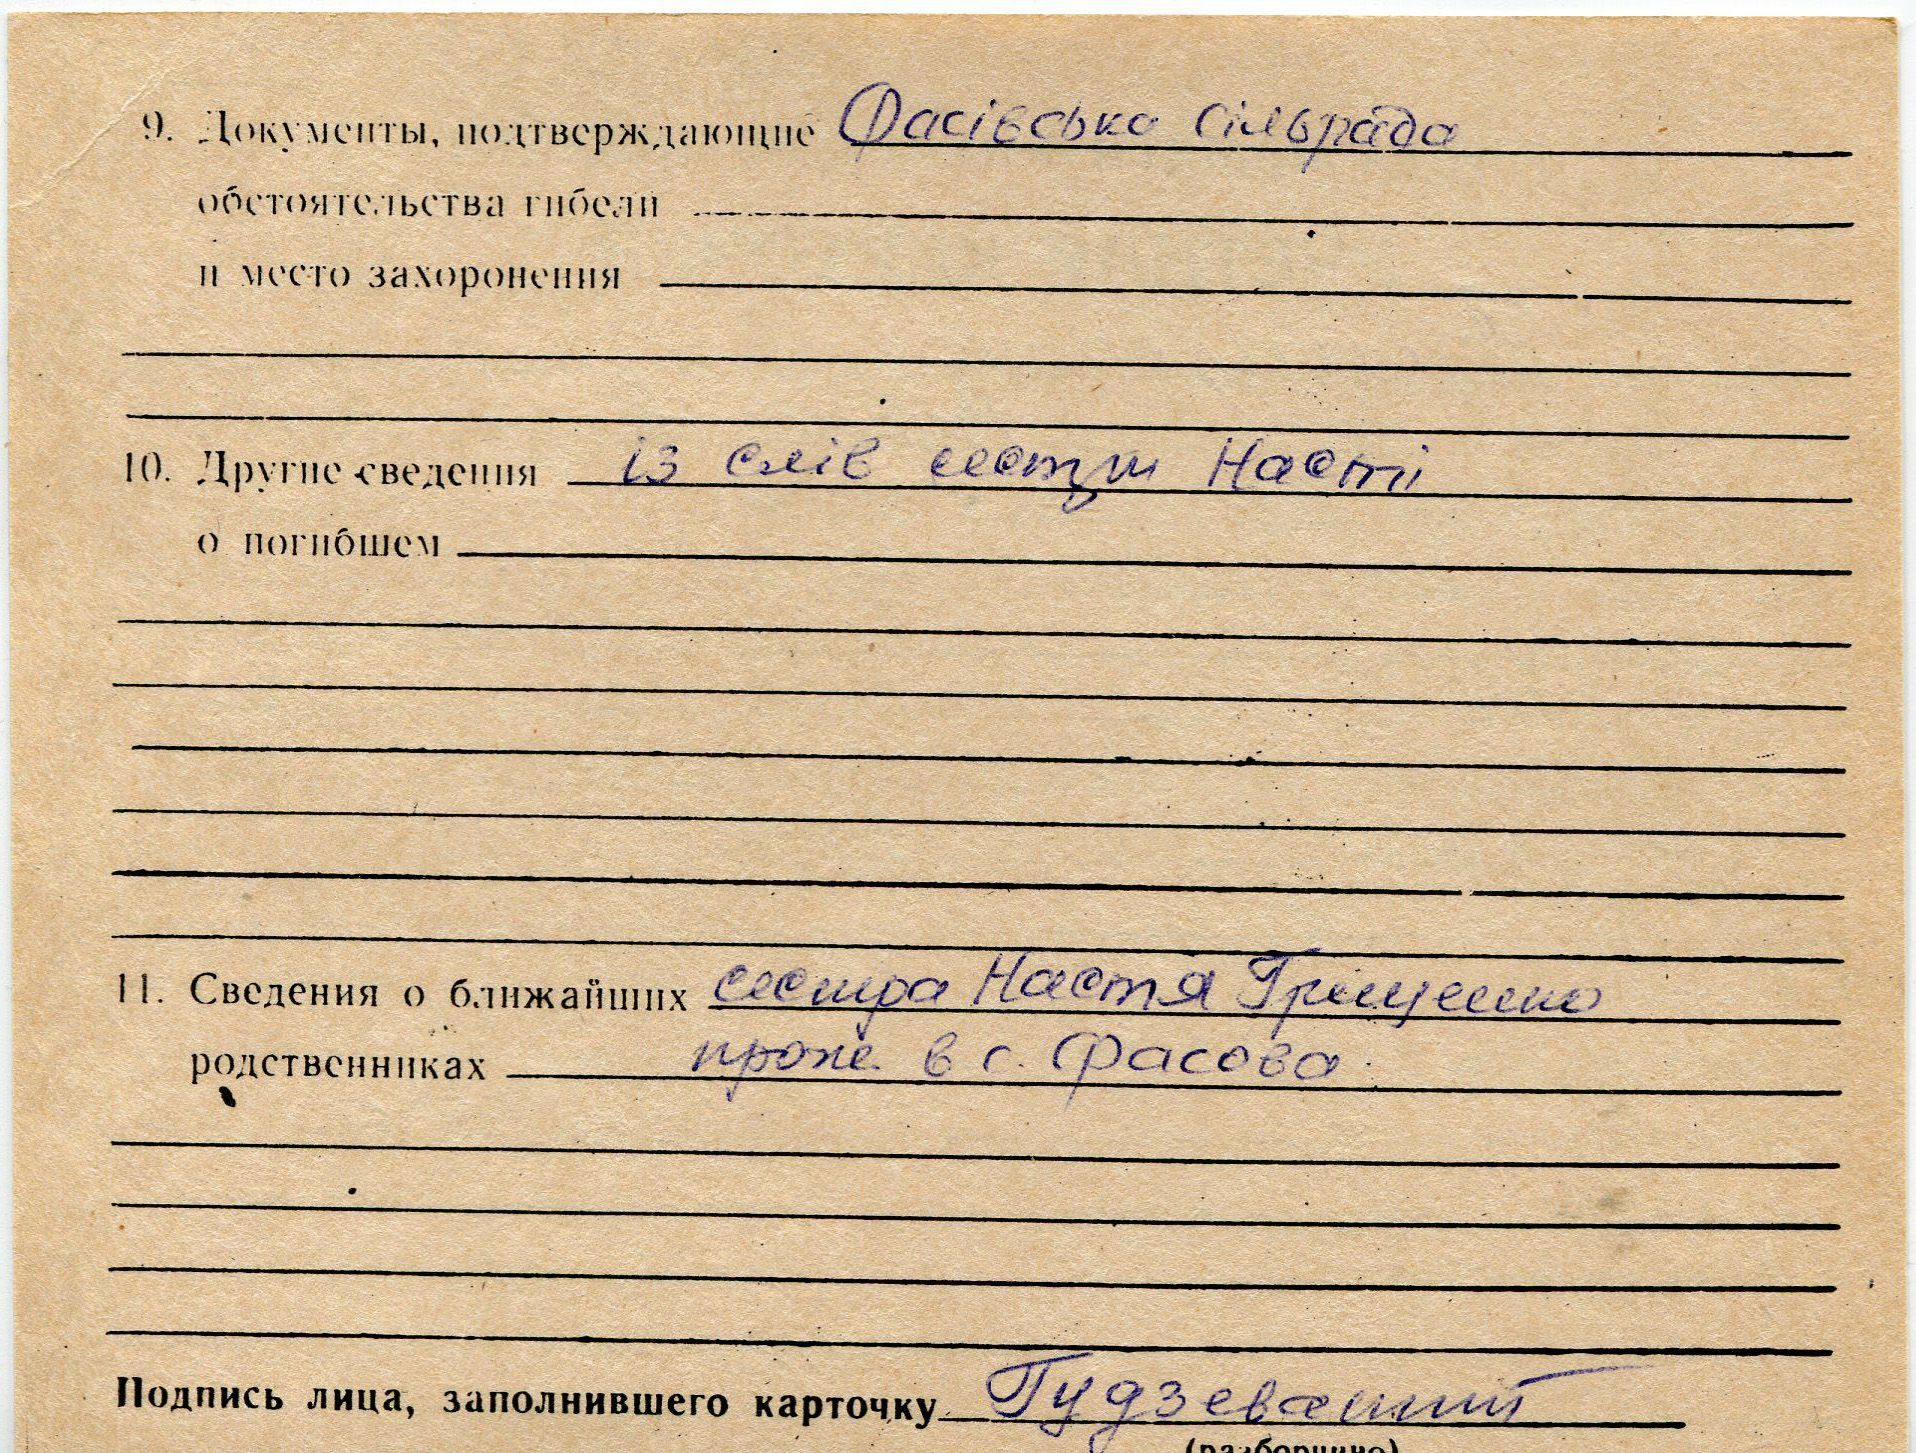 9. Документы, подтверждающие Фасівська сільрада
обстоятельства гибели
и место захоронения
10. Другие сведения із слів сестри Насті
о погибшем
11. Сведения о ближайших сестра Настя Грищенко
родственниках прож. в с. Фасова
Подпись лица, заполнившего карточку
(разборчиво)